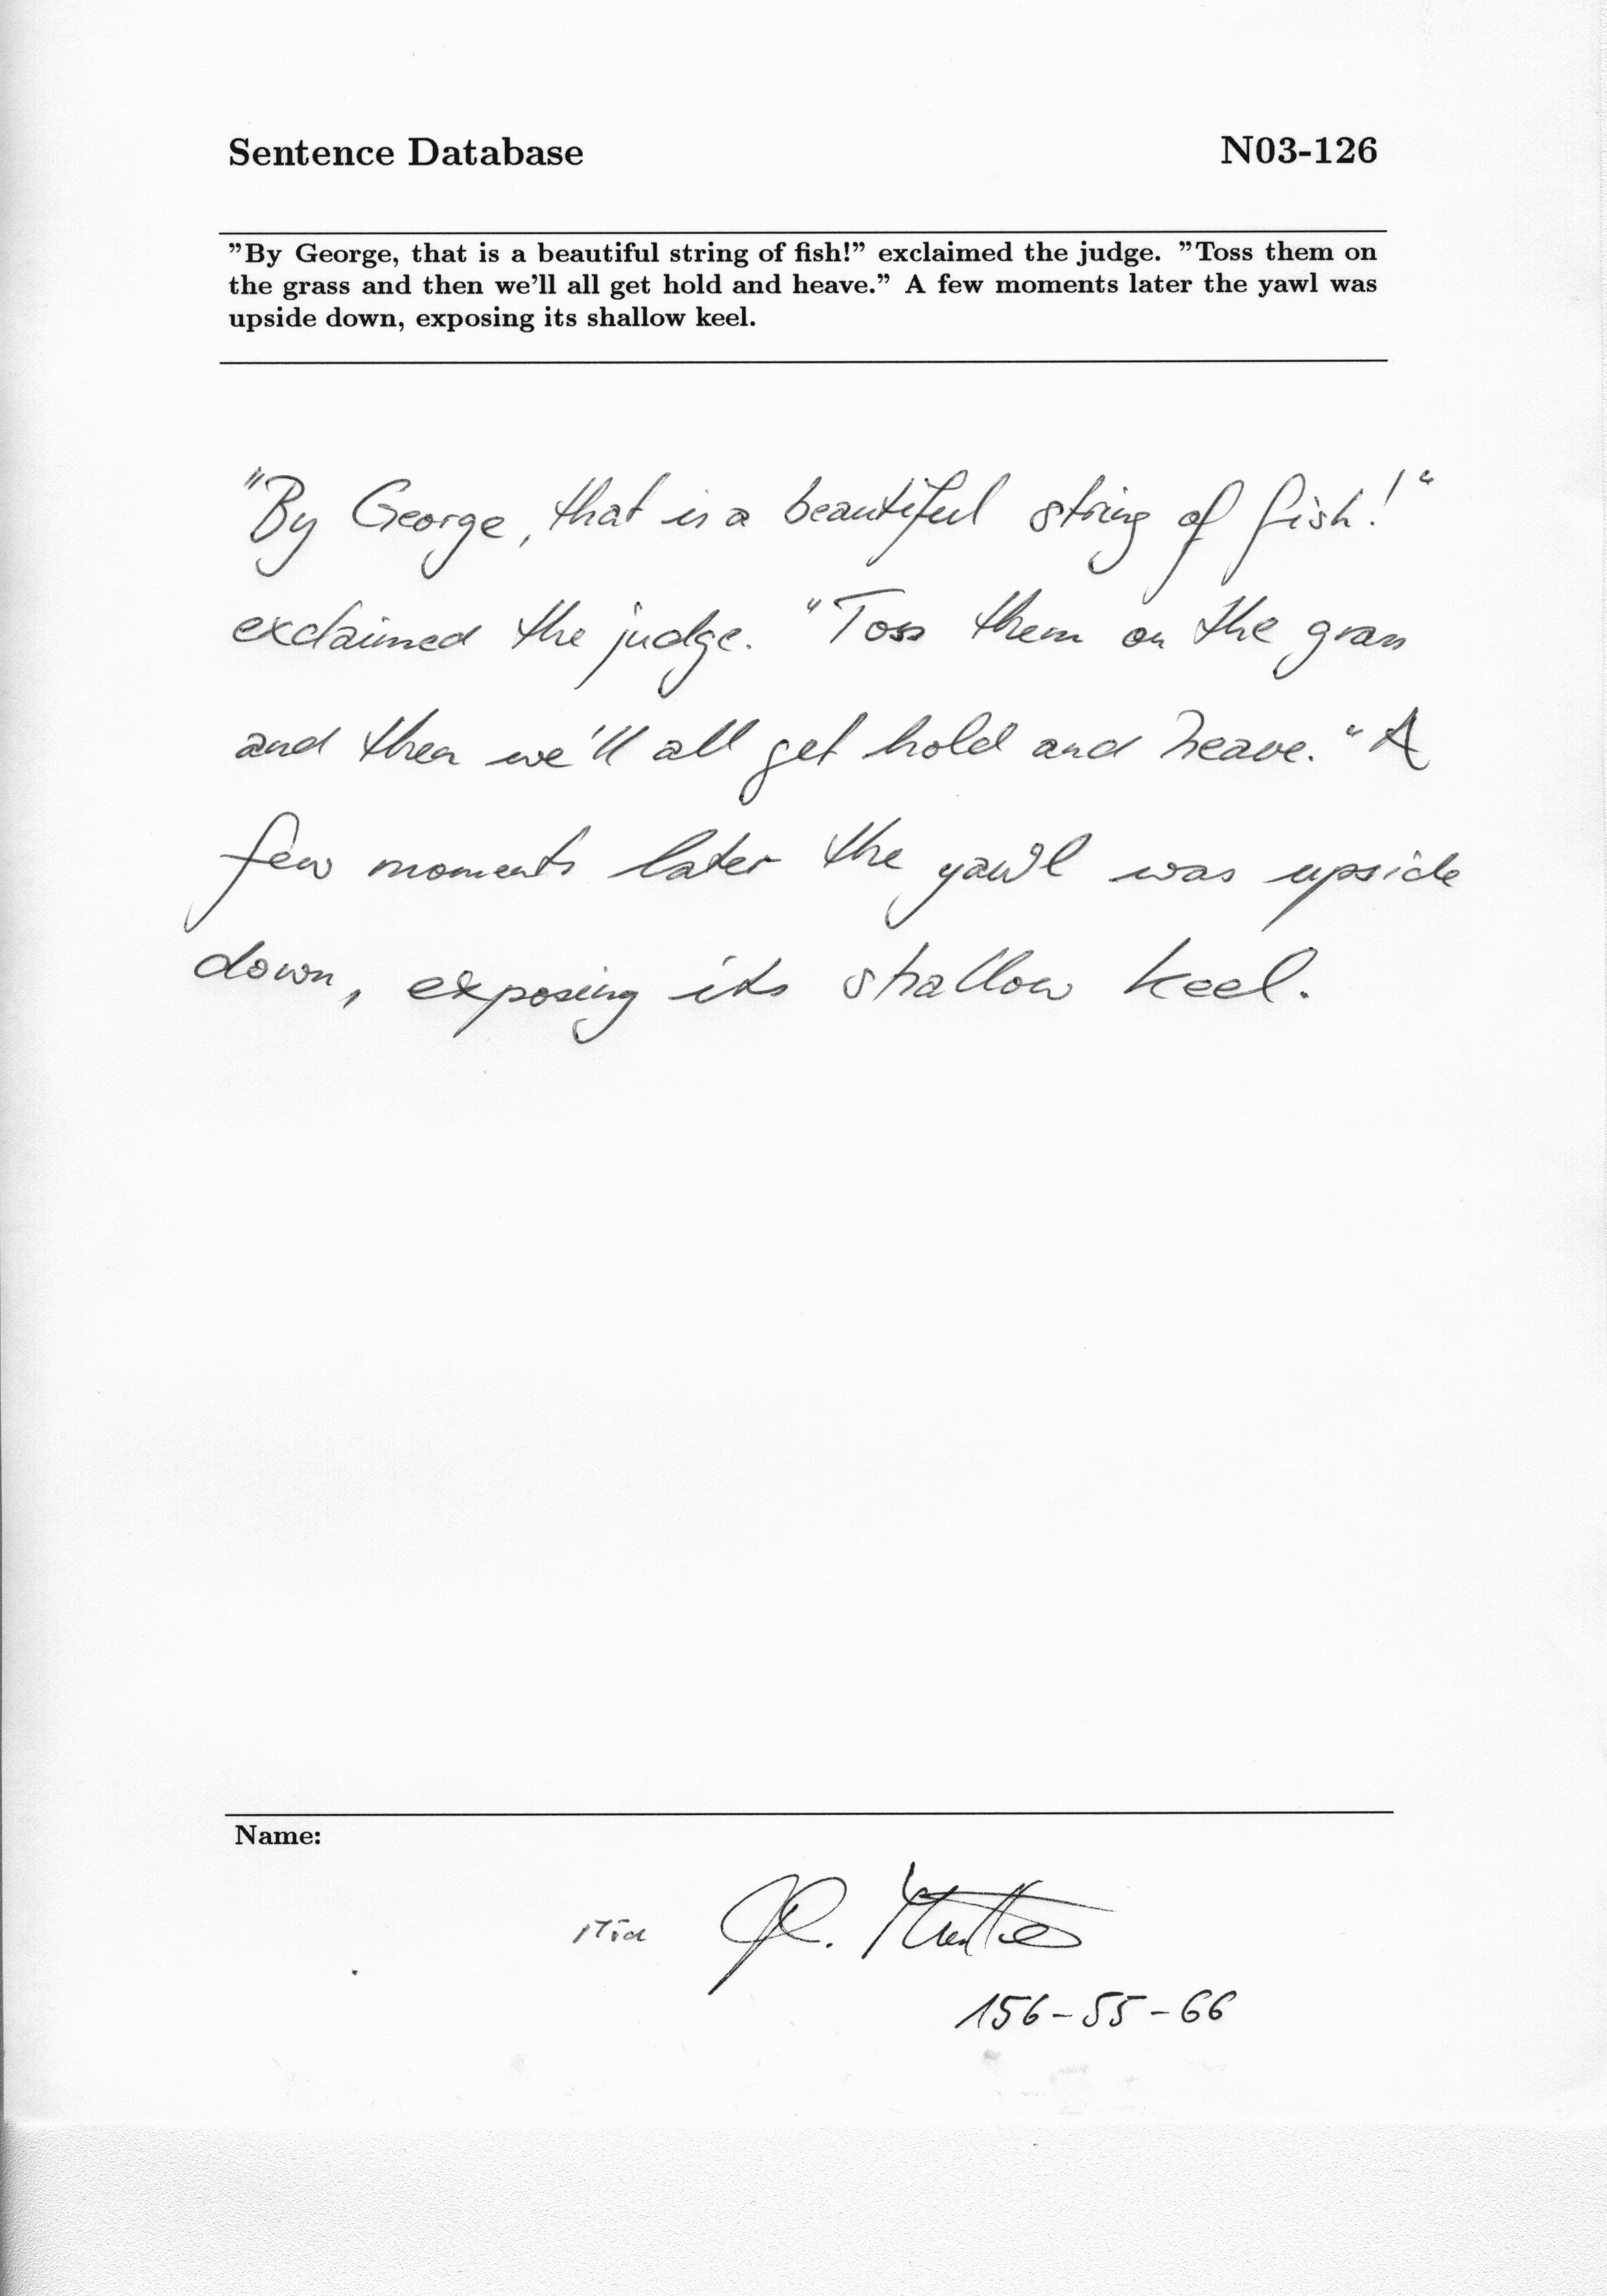 Sentence Database N03-126
”By George, that is a beautiful string of fish!” exclaimed the judge. ”Toss them on
the grass and then we’ll all get hold and heave.” A few moments later the yawl was
upside down, exposing its shallow keel.
"By George, that is a beautiful string of fish!"
exclaimed the judge. "Toss them on the grass
and then we'll all get hold and heave." A
few moments later the yawl was upside
down, exposing its shallow keel.
Name:
156-55-66